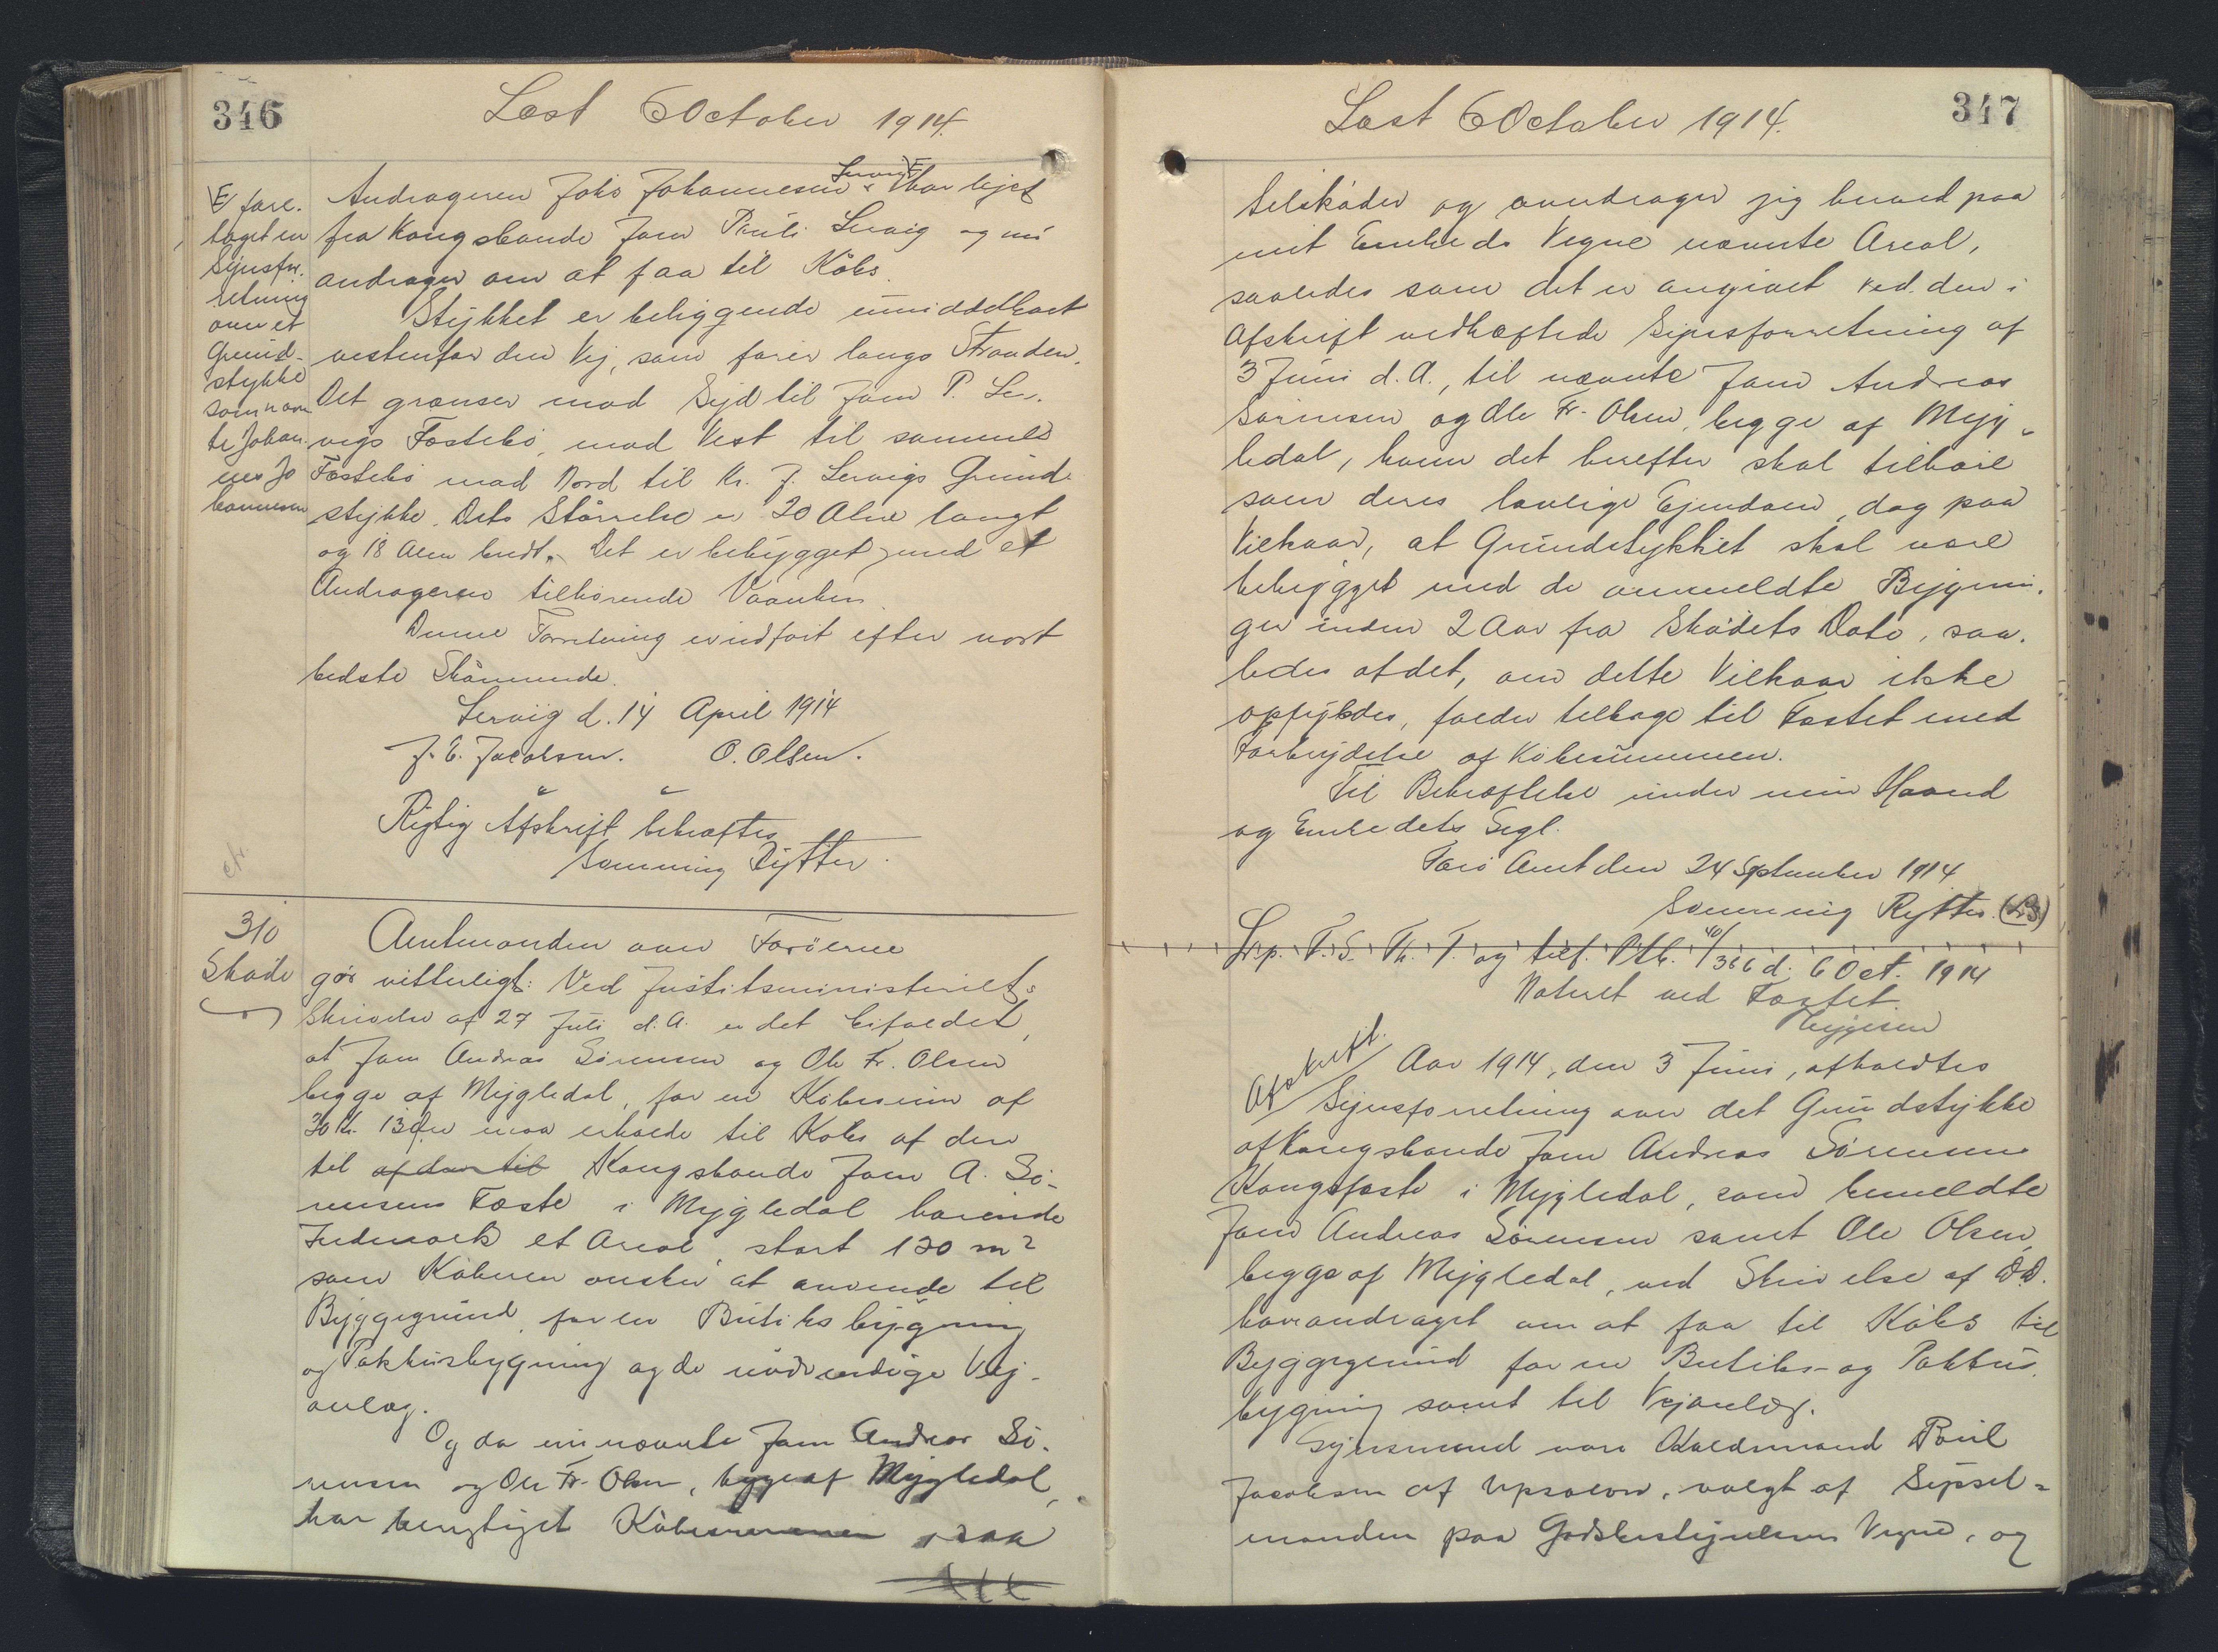 346
Læst 6 October 1914.
E/ fore.
taget en
Synsfor.
retning
over et
Grund-
stykke
som nævn
te Johan.
nes Jo
hannesen
Andrageren Johs Johannesen Lervig E/ har lejet
fra Kongsbonde Joen Pauli Lervig og nu
andrager om at faa til Købs.
Stykket er beliggende umiddelbart
vestenfor den Vej, som fører langs Stranden.
Det grænser mod Syd til Joen P. Ler.
vigs Fæstebø, mod Vest til sammes
Fæstebø mod Nord til Kr. J. Lervigs Grund.
stykke. Dets Størrelse er 20 Alen langt
og 18 Alen bredt. Det er bebygget med et
Andrageren tilhørende Vaanhus.
Denne Forretning er udført efter vort
bedste Skønnende.
Lervig d. 14 April 1914
J. E. Jacobsen. O. Olsen.
Rigtig Afskrift bekræftes
Svenning Rytter.
310
Skøde
Amtmanden over Færöerne
gör vitterligt: Ved Justitsministeriets
Skrivelse af 27 Juli d. A. er det bifaldet,
at Joen Andreas Sørensen og Ole Fr. Olsen
begge af Mygledal, for en Købesum af
30 Kr. 13 Øre maa erholde til Købs af den
til af den til Kongsbonde Joen A. Sö-
rensens Fæste i Mygledal hørende
Indmark et Areal, stort 120 m²
som Køberen ønsker at anvende til
Byggegrund for en Butiksbygning
og Pakhusbygning og de nødvendige Vej-
anlæg.
Og da nu nævnte Joen Andreas Sö.
rensen og Ole Fr. Olsen, begge af Mygledal,
har berigtiget Købesummen, saa
347
Læst 6 October 1914.
tilskøder og overdrager jeg herved paa
mit Embeds Vegne nævnte Areal,
saaledes som det er angivet ved den i
Afskrift vedhæftede Synsforretning af
3 Juni d. A., til nævnte Joen Andreas
Sørensen og Ole Fr. Olsen, begge af Myg-
ledal, hvem det herefter skal tilhøre
som deres lovlige Ejendom, dog paa
Vilkaar, at Grundstykket skal være
bebygget med de anmeldte Bygnin.
ger inden 2 Aar fra Skødets Dato, saa.
ledes at det, om dette Vilkaar ikke
opfyldes, falder tilbage til Fæstet med
Forbrydelse af Købesummen.
Til Bekræftelse under min Haand
og Embedets Segl.
Færø Amt den 24 September 1914
Svenning Rytter. (L.S.)
Lrp. F. S. Th. T. og tilf. Ptb. 40/366 d. 6 Oct. 1914
Noteret ved Fæstet.
Afskrift.
Aar 1914, den 3 Juni, afholdtes
Synsforretning over det Grundstykke
af Kongsbonde Joen Andreas Sörensens
Kongsfæste i Mygledal, som bemeldte
Joen Andreas Sørensen samt Ole Olsen,
begge af Mygledal, ved Skrivelse af D.D.
have andraget om at faa til Købs til
Byggegrund for en Butiks- og Pakhus.
bygning samt til Vejanlæg.
Synsmænd vare Oldermand Poul
Jacobsen af Nipsalen, valgt af Syssel-
manden paa Godsbestyrelsens Vegne, og